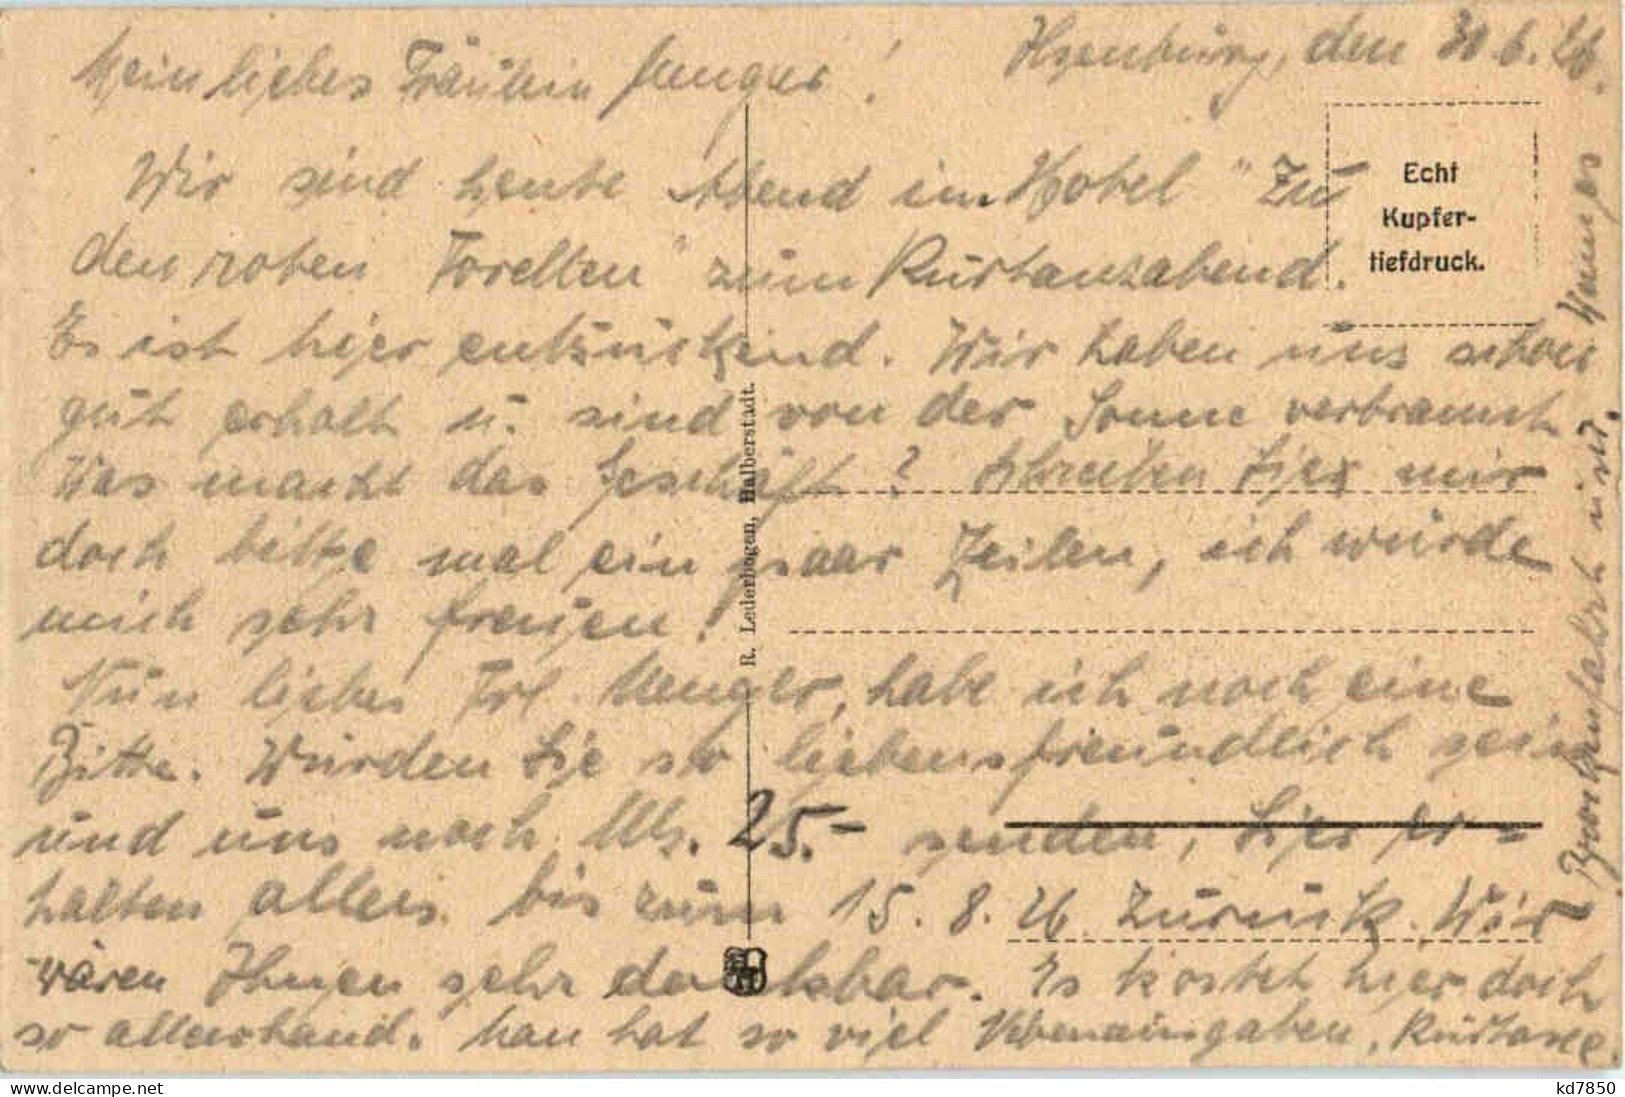 Mein liebes Fräulein Menger!
Ilsenburg, den 30.6.26.
Wir sind heute Abend im Hotel "Zu
den roten Forellen" zum Kurtanzabend.
Es ist hier entzückend. Wir haben uns schon
gut erholt u. sind von der Sonne verbrannt.
Was macht das Geschäft? Schreiben Sie mir
doch bitte mal ein paar Zeilen, ich würde
mich sehr freuen!
Nun liebes Frl. Menger, habe ich noch eine
Bitte. Würden Sie so liebensfreundlich sein
und uns noch Mk. 25.- senden, Sie er-
halten alles bis zum 15.8.26 zurück. Wir
wären Ihnen sehr dankbar. Es kostet hier doch
so allerhand. Man hat so viel Nebenausgaben, Kurtaxe,
Brockenfahrt usw.
Echt
Kupfer-
tiefdruck.
R. Lederbogen, Halberstadt.
kd7850